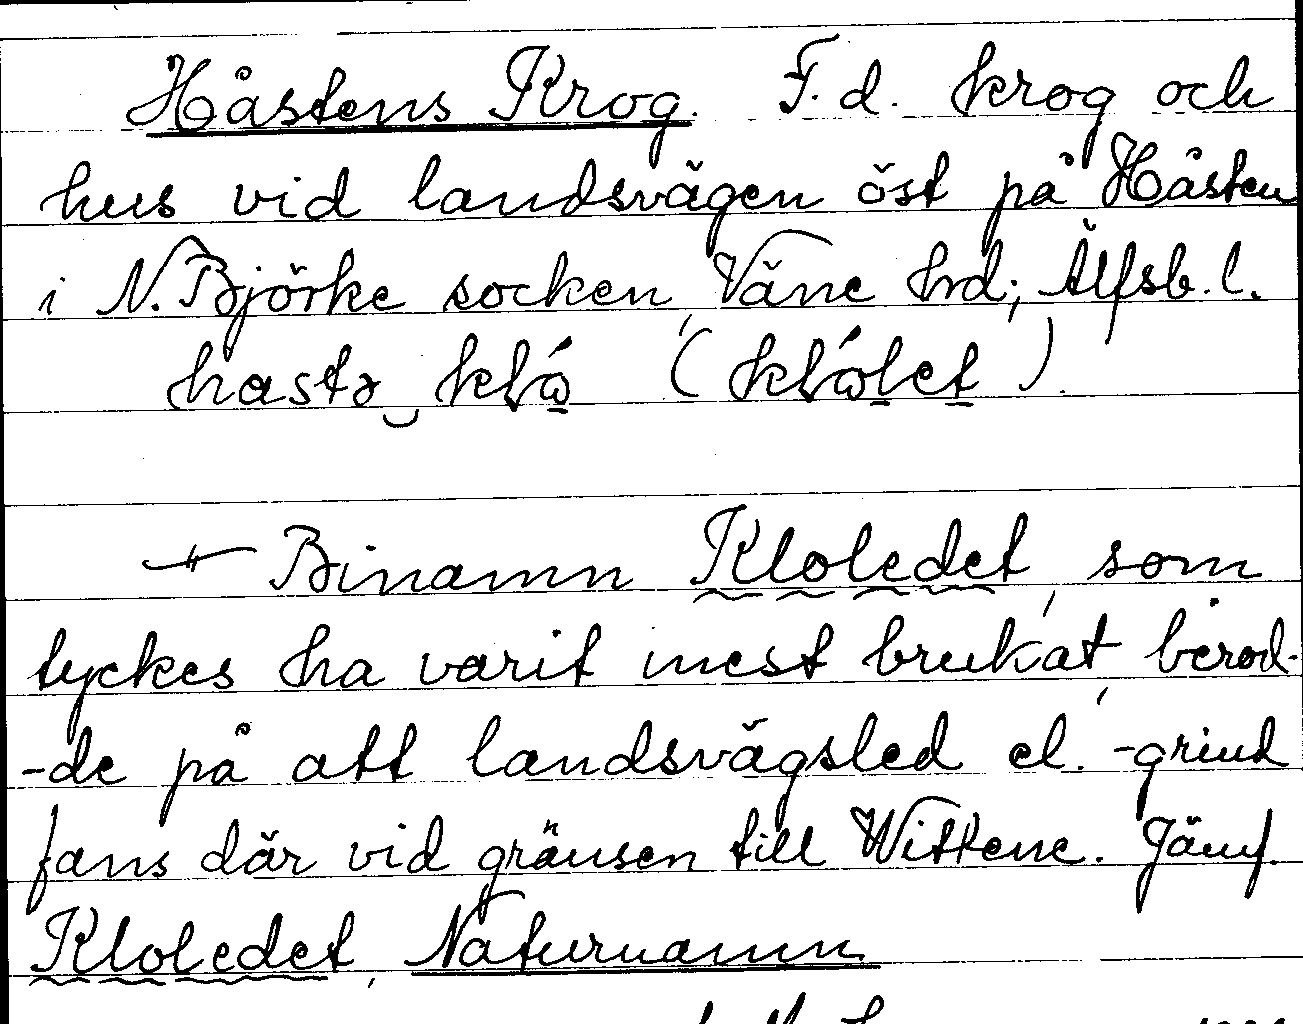 Håstens Krog. F. d. krog och
hus vid landsvägen öst på Håsten
i N. Björke socken, Väne hrd; Älfsb. l.
Binamn Kloledet, som
tyckes ha varit mest brukat, berod-
-de på att landsvägsled el. -grind
fans där vid gränsen till Wittene. Jämf.
Kloledet, Naturnamn.